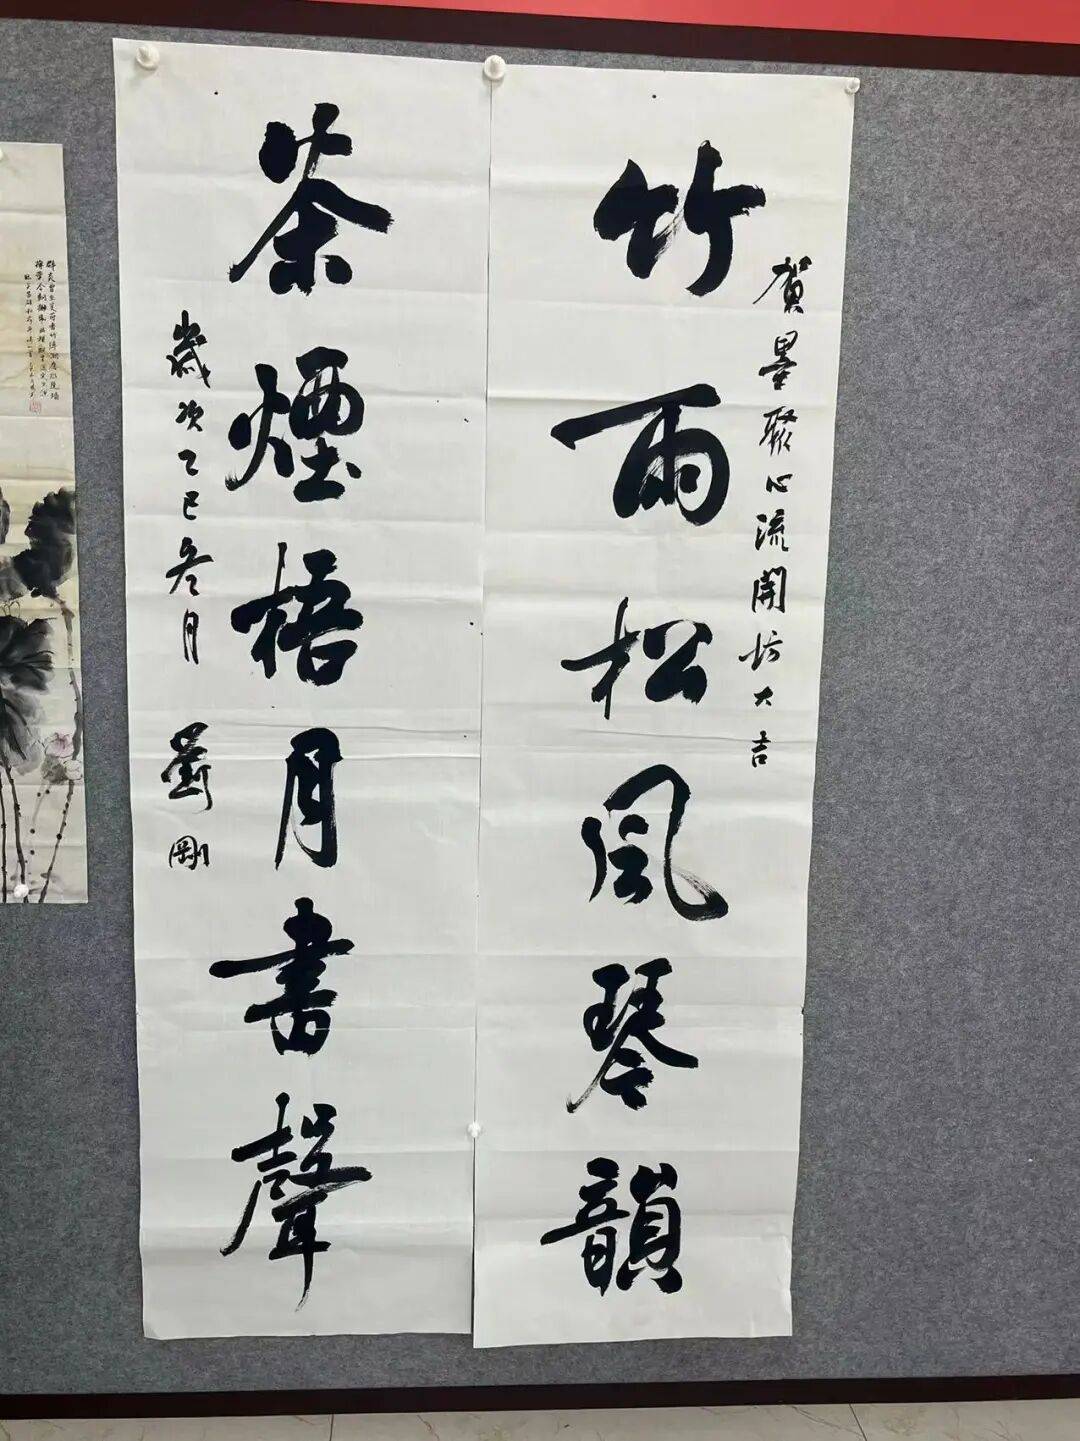 賀墨聚心流開坊大吉
竹雨松風琴韻
茶煙梧月書聲
歲次乙巳冬月 劉剛